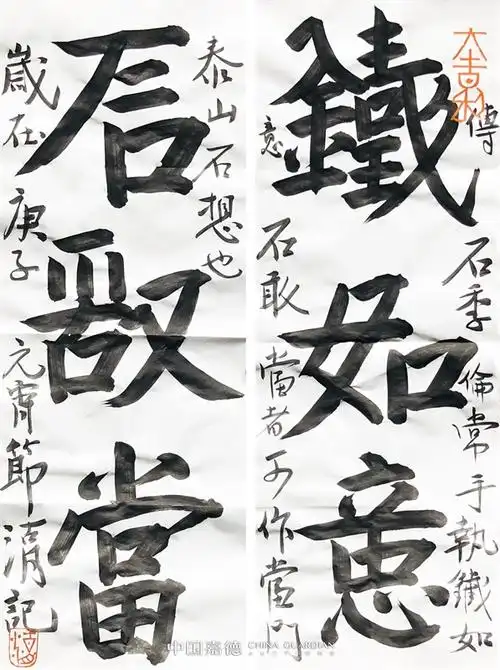 傳石季倫常手執鐵如
鐵如意
意石敢當者可作當門
泰山石想也
石敢當
歲在庚子元宵節記
中国嘉德 CHINA GUARDIAN